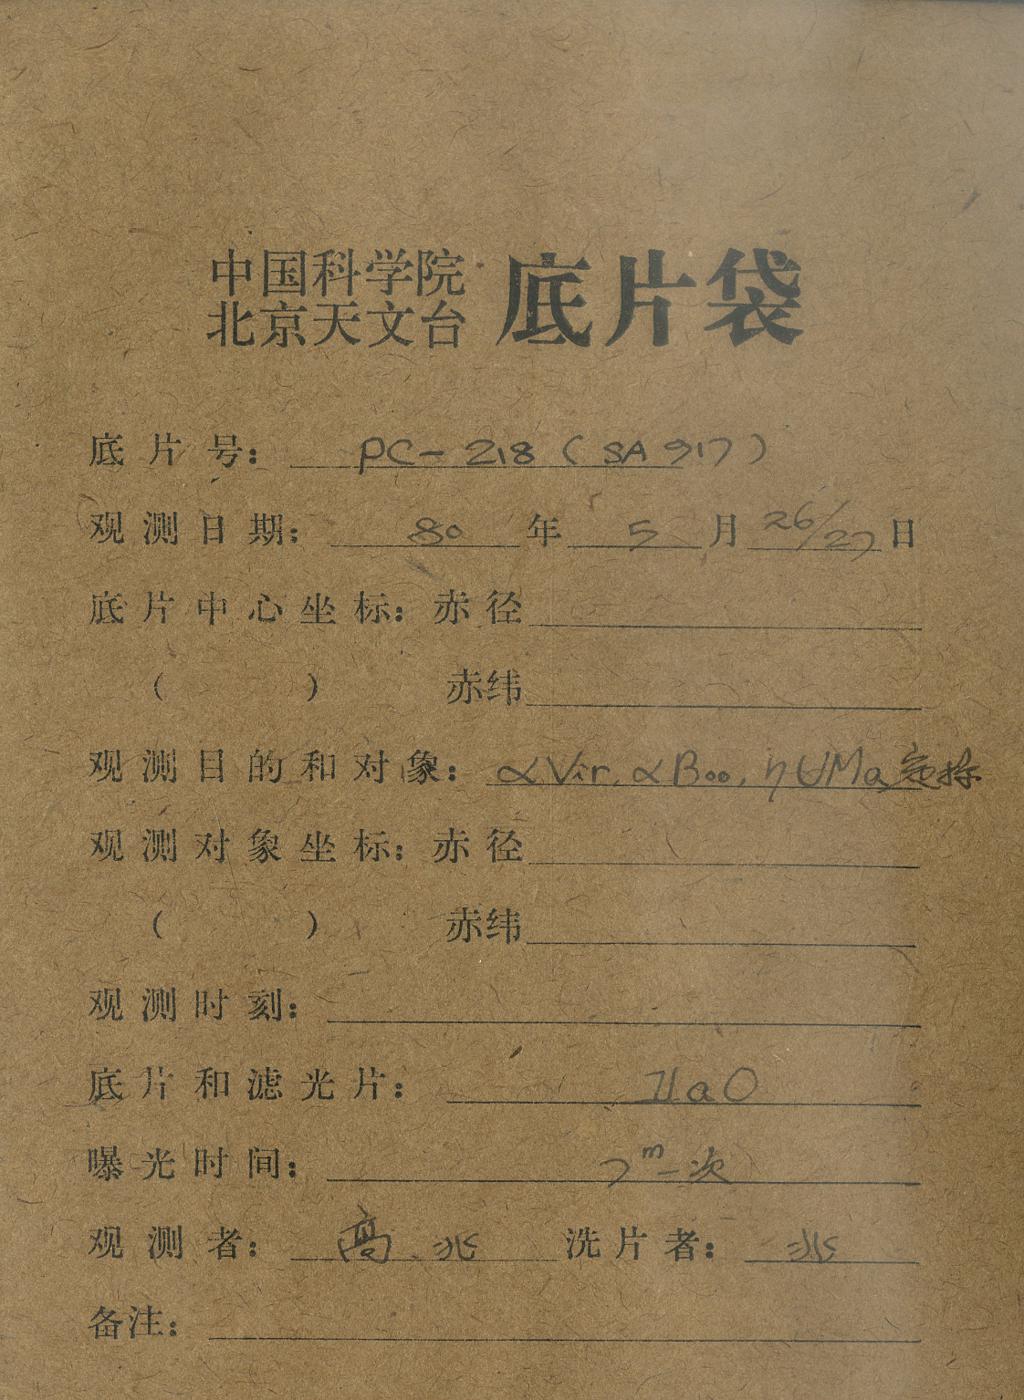 中国科学院
北京天文台 底片袋
底片号： PC-218 (SA 917)
观测日期： 80 年 5 月 26/27 日
底片中心坐标：赤径
（ ） 赤纬
观测目的和对象： αVir, αBoo, ηUMa 定标
观测对象坐标：赤径
（ ） 赤纬
观测时刻：
底片和滤光片： IIaO
曝光时间： 7m一次
观测者： 高、兆 洗片者： 兆
备注：